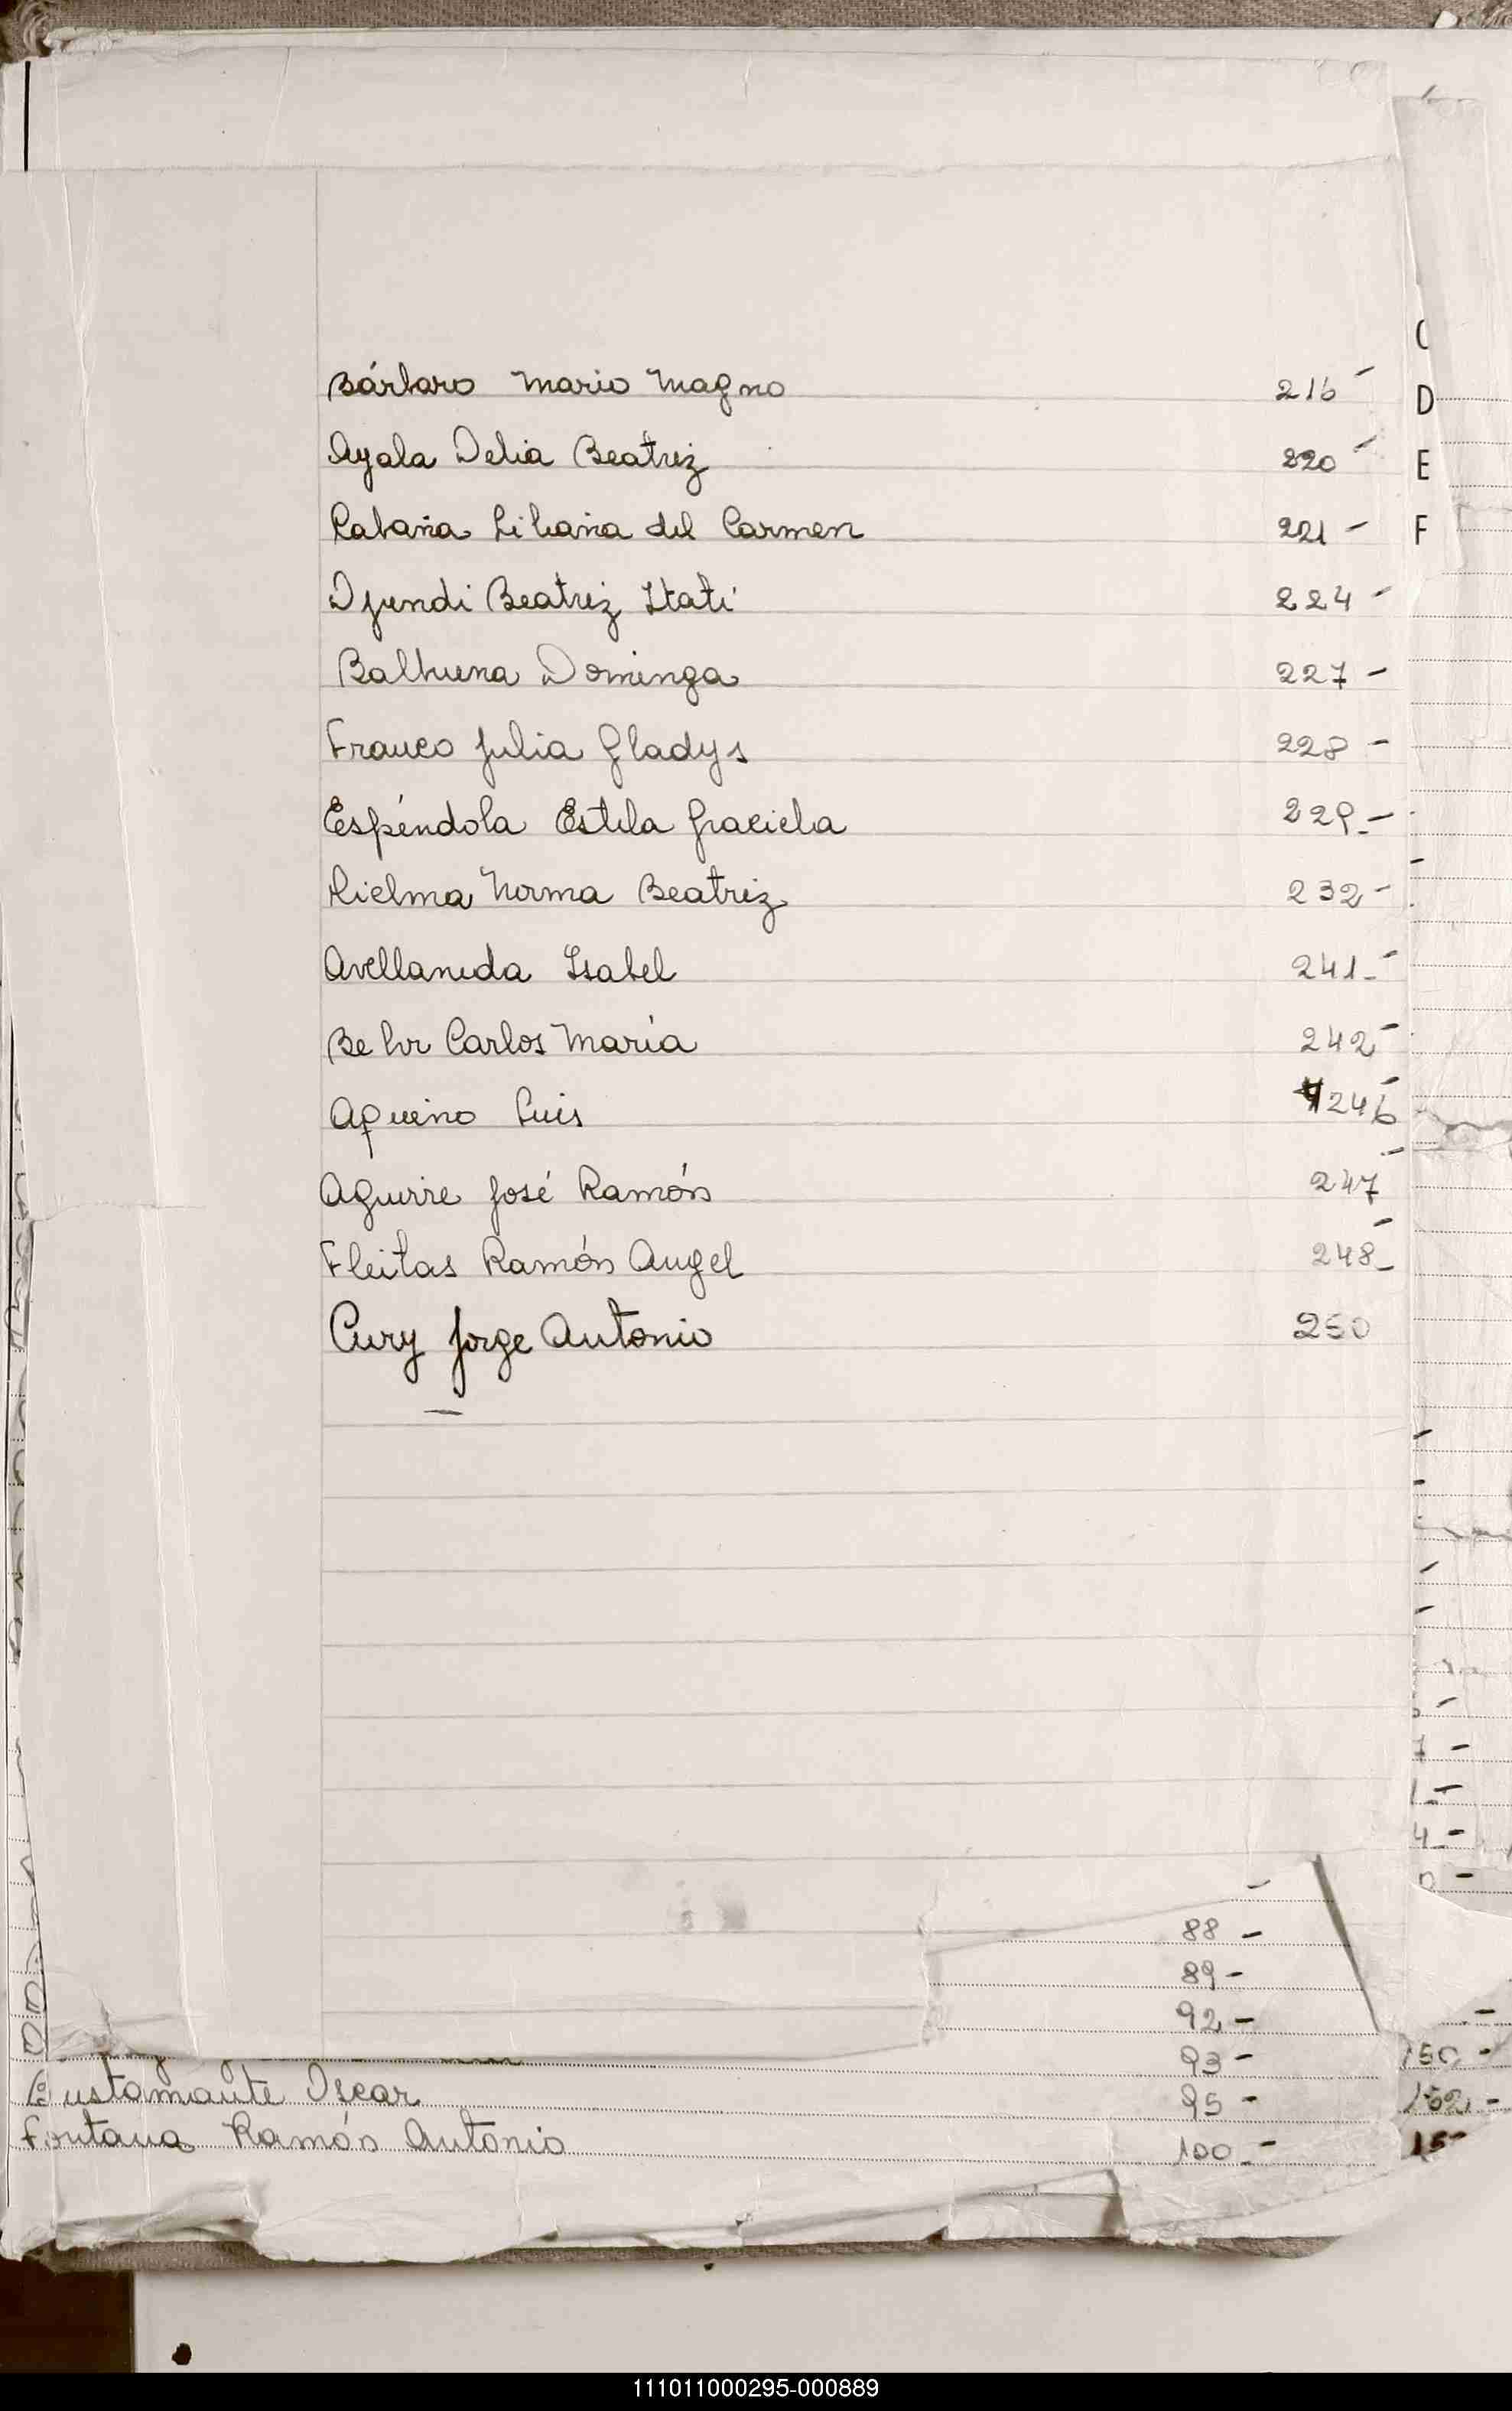 Bárbaro Mario Magno 216 -
Ayala Delia Beatriz 220 -
Cabaña Liliana del Carmen 221 -
Djundi Beatriz Itatí 224 -
Balbuena Dominga 227 -
Franco Julia Gladys 228 -
Espéndola Estela Graciela 229.-
Rielma Norma Beatriz 232 -
Avellaneda Isabel 241.-
Behr Carlos María 242 -
Aquino Luis 246 -
Aguirre José Ramón 247 -
Fleitas Ramón Angel 248 -
Cury Jorge Antonio 250
C
D
E
F
88 -
89 -
92 -
93 -
Bustamante Oscar 95 -
Fontana Ramón Antonio 100.-
150 -
152 -
15-
111011000295-000889